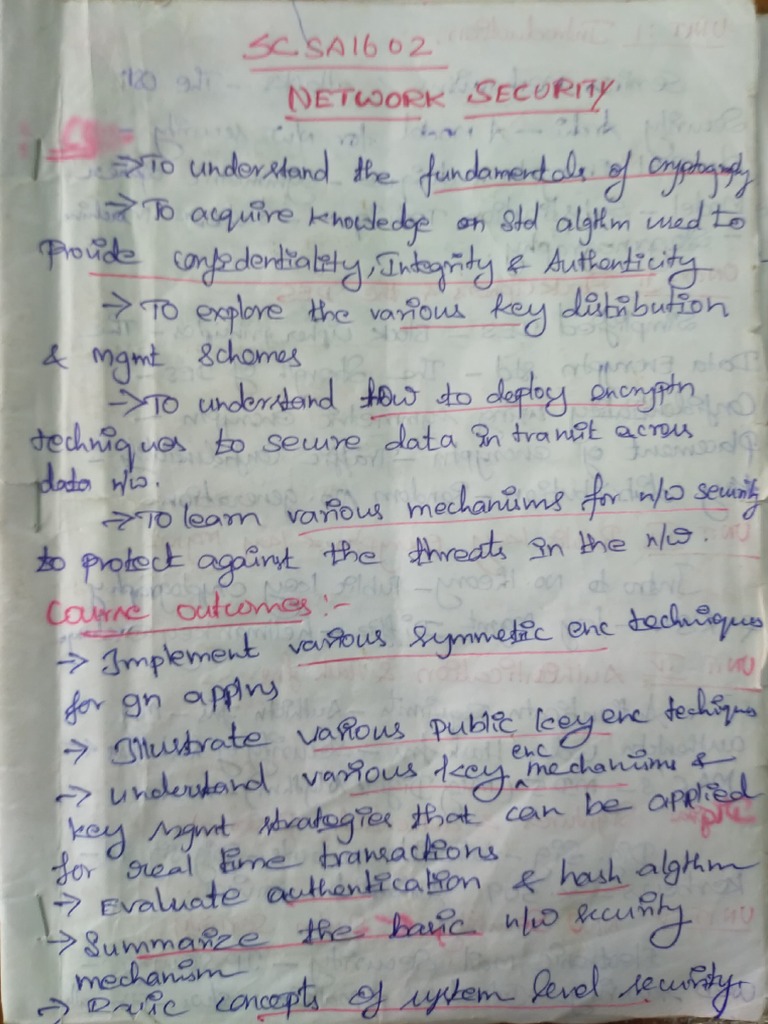 SCSA1602
NETWORK SECURITY
→ To understand the fundamentals of cryptography
→ To acquire knowledge on std algthm used to
provide confidentiality, Integrity & Authenticity
→ To explore the various key distribution
& mgmt schemes
→ To understand how to deploy encryptn
techniques to secure data in transit across
data n/w.
→ To learn various mechanisms for n/w security
to protect against the threats in the n/w.
Course outcomes :-
→ Implement various symmetic enc techniques
for gn applns
→ Illustrate various public key enc techiques
enc
→ understand various key ^ mechanisms &
key mgmt strategies that can be applied
for real time transactions
→ Evaluate authentication & hash algthm
→ Summarize the basic n/w security
mechanism
→ Basic concepts of system level security